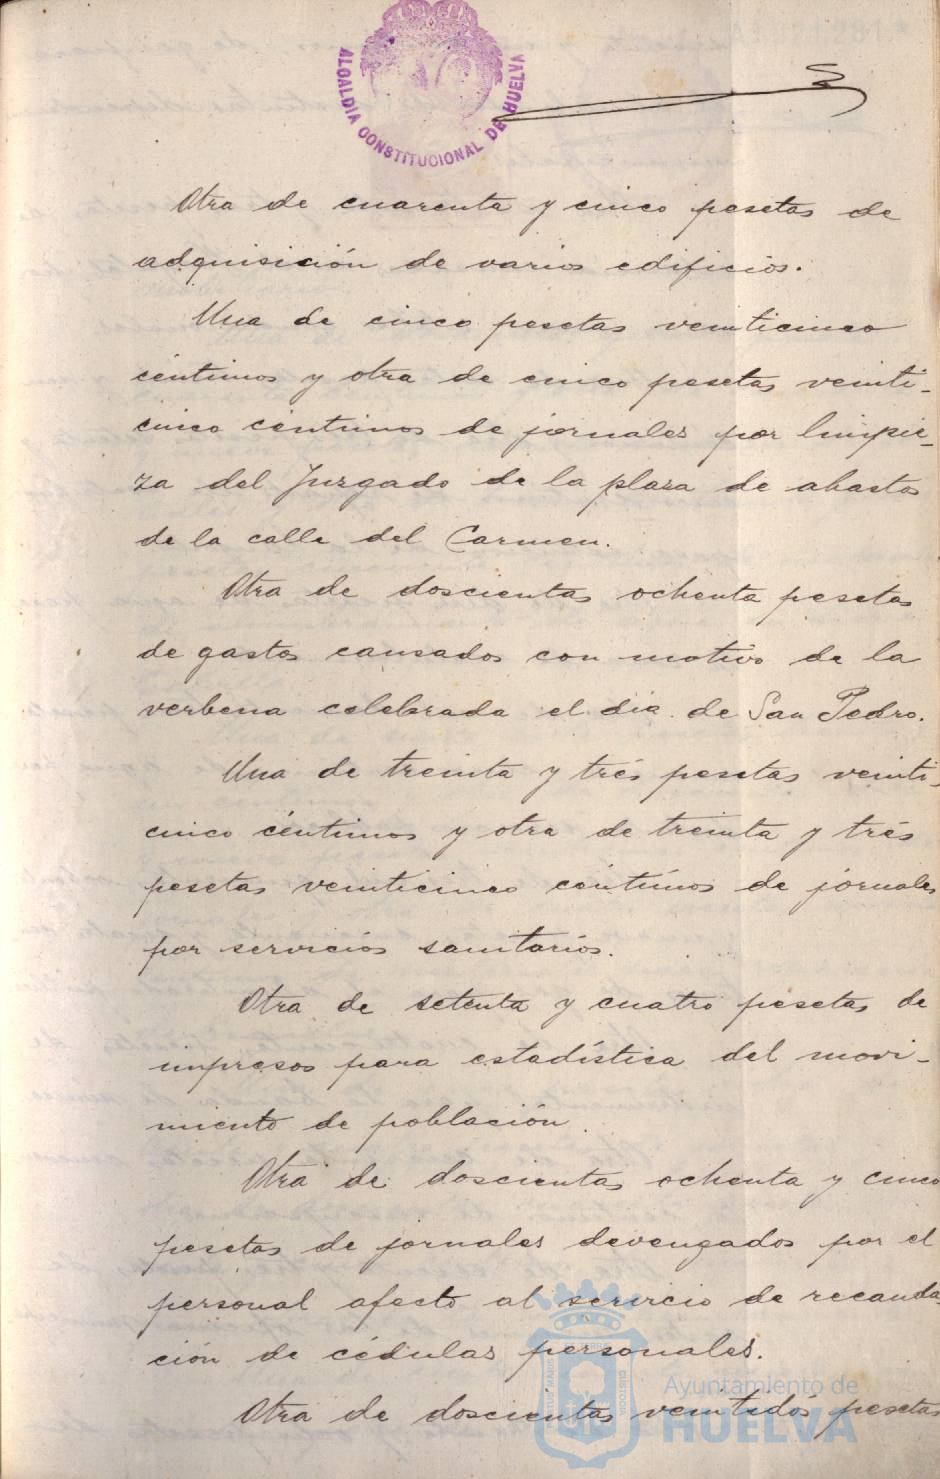 ALCALDIA CONSTITUCIONAL DE HUELVA
Otra de cuarenta y cinco pesetas de
adquisición de varios edificios.
Una de cinco pesetas veinticinco
céntimos y otra de cinco pesetas veinti-
cinco céntimos de jornales por limpie-
za del Juzgado de la plaza de abastos
de la calle del Carmen.
Otra de doscientas ochenta pesetas
de gastos causados con motivo de la
verbena celebrada el día de San Pedro.
Una de treinta y trés pesetas veinti-
cinco céntimos y otra de treinta y trés
pesetas veinticinco céntimos de jornales
por servicios sanitarios.
Otra de setenta y cuatro pesetas de
impresos para estadística del movi-
miento de población.
Otra de doscientas ochenta y cinco
pesetas de jornales devengados por el
personal afecto al servicio de recauda-
ción de cédulas personales.
Otra de doscientas veintidós pesetas
Ayuntamiento de
HUELVA